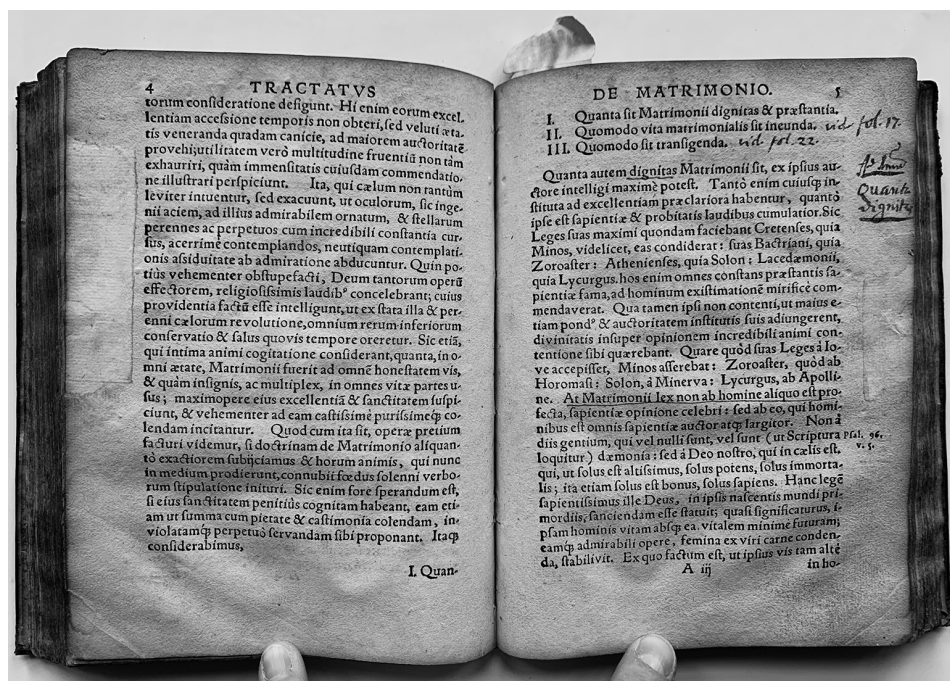 4 TRACTATVS
torum consideratione defigunt. Hi enim eorum excel-
lentiam accessione temporis non obteri, sed veluti æta-
tis veneranda quadam canicie, ad maiorem auctoritatē
provehi; utilitatem verò multitudine fruentiū non tàm
exhauriri, quàm immensitatis cuiusdam commendatio-
ne illustrari perspiciunt. Ita, qui cælum non tantùm
leviter intuentur, sed exacuunt, ut oculorum, sic inge-
nii aciem, ad illius admirabilem ornatum, & stellarum
perennes ac perpetuos cum incredibili constantia cur-
sus, acerrimè contemplandos, neutiquam contemplati-
onis assiduitate ab admiratione abducuntur. Quin po-
tiùs vehementer obstupefacti, Deum tantorum operū
effectorem, religiosissimis laudibꝰ concelebrant; cuius
providentia factū esse intelligunt, ut ex stata illa & per-
enni cælorum revolutione, omnium rerum inferiorum
conservatio & salus quovis tempore oreretur. Sic etiā,
qui intima animi cogitatione considerant, quanta, in o-
mni ætate, Matrimonii fuerit ad omnē honestatem vis,
& quàm insignis, ac multiplex, in omnes vitæ partes u-
sus; maximopere eius excellentiā & sanctitatem suspi-
ciunt, & vehementer ad eam castissimè purissimeq́; co-
lendam incitantur. Quod cum ita sit, operæ pretium
facturi videmur, si doctrinam de Matrimonio aliquan-
tò exactiorem subijciamus & horum animis, qui nunc
in medium prodierunt, connubii fœdus solenni verbo-
rum stipulatione inituri. Sic enim fore sperandum est,
si eius sanctitatem penitiùs cognitam habeant, eam eti-
am ut summa cum pietate & castimonia colendam, in-
violatamq́; perpetuò servandam sibi proponant. Itaq;
considerabimus,
I. Quan-
DE MATRIMONIO. 5
I. Quanta sit Matrimonii dignitas & præstantia.
II. Quomodo vita matrimonialis sit ineunda. vid. fol. 17.
III. Quomodo sit transigenda. vid. fol. 22.
Quanta autem dignitas Matrimonii sit, ex ipsius au-
ctore intelligi maximè potest. Tantò enim cuiusq; in-
stituta ad excellentiam præclariora habentur, quantò
ipse est sapientiæ & probitatis laudibus cumulatior. Sic
Leges suas maximi quondam faciebant Cretenses, quia
Minos, videlicet, eas condiderat: suas Bactriani, quia
Zoroaster: Athenienses, quia Solon: Lacedæmonii,
quia Lycurgus. hos enim omnes constans præstantis sa-
pientiæ fama, ad hominum existimationē mirificè com-
mendaverat. Qua tamen ipsi non contenti, ut maius e-
tiam pondꝰ & auctoritatem institutis suis adiungerent,
divinitatis insuper opinionem incredibili animi con-
tentione sibi quærebant. Quare quòd suas Leges à Io-
ve accepisset, Minos asserebat: Zoroaster, quòd ab
Horomasi: Solon, à Minerva: Lycurgus, ab Apolli-
ne. At Matrimonii lex non ab homine aliquo est pro-
fecta, sapientiæ opinione celebri: sed ab eo, qui homi-
nibus est omnis sapientiæ auctor atq; largitor. Non à
diis gentium, qui vel nulli sunt, vel sunt (ut Scriptura
loquitur) dæmonia: sed à Deo nostro, qui in cælis est.
qui, ut solus est altissimus, solus potens, solus immorta-
lis; ita etiam solus est bonus, solus sapiens. Hanc legē
sapientissimus ille Deus, in ipsis nascentis mundi pri-
mordiis, sanciendam esse statuit; quasi significaturus, i-
psam hominis vitam absq; ea. vitalem minimè futuram;
eamq́; admirabili opere, femina ex viri carne conden-
da, stabilivit. Ex quo factum est, ut ipsius vis tam altè
A iij in ho-
Quanta
dignitas
Psal. 96.
v. 5.